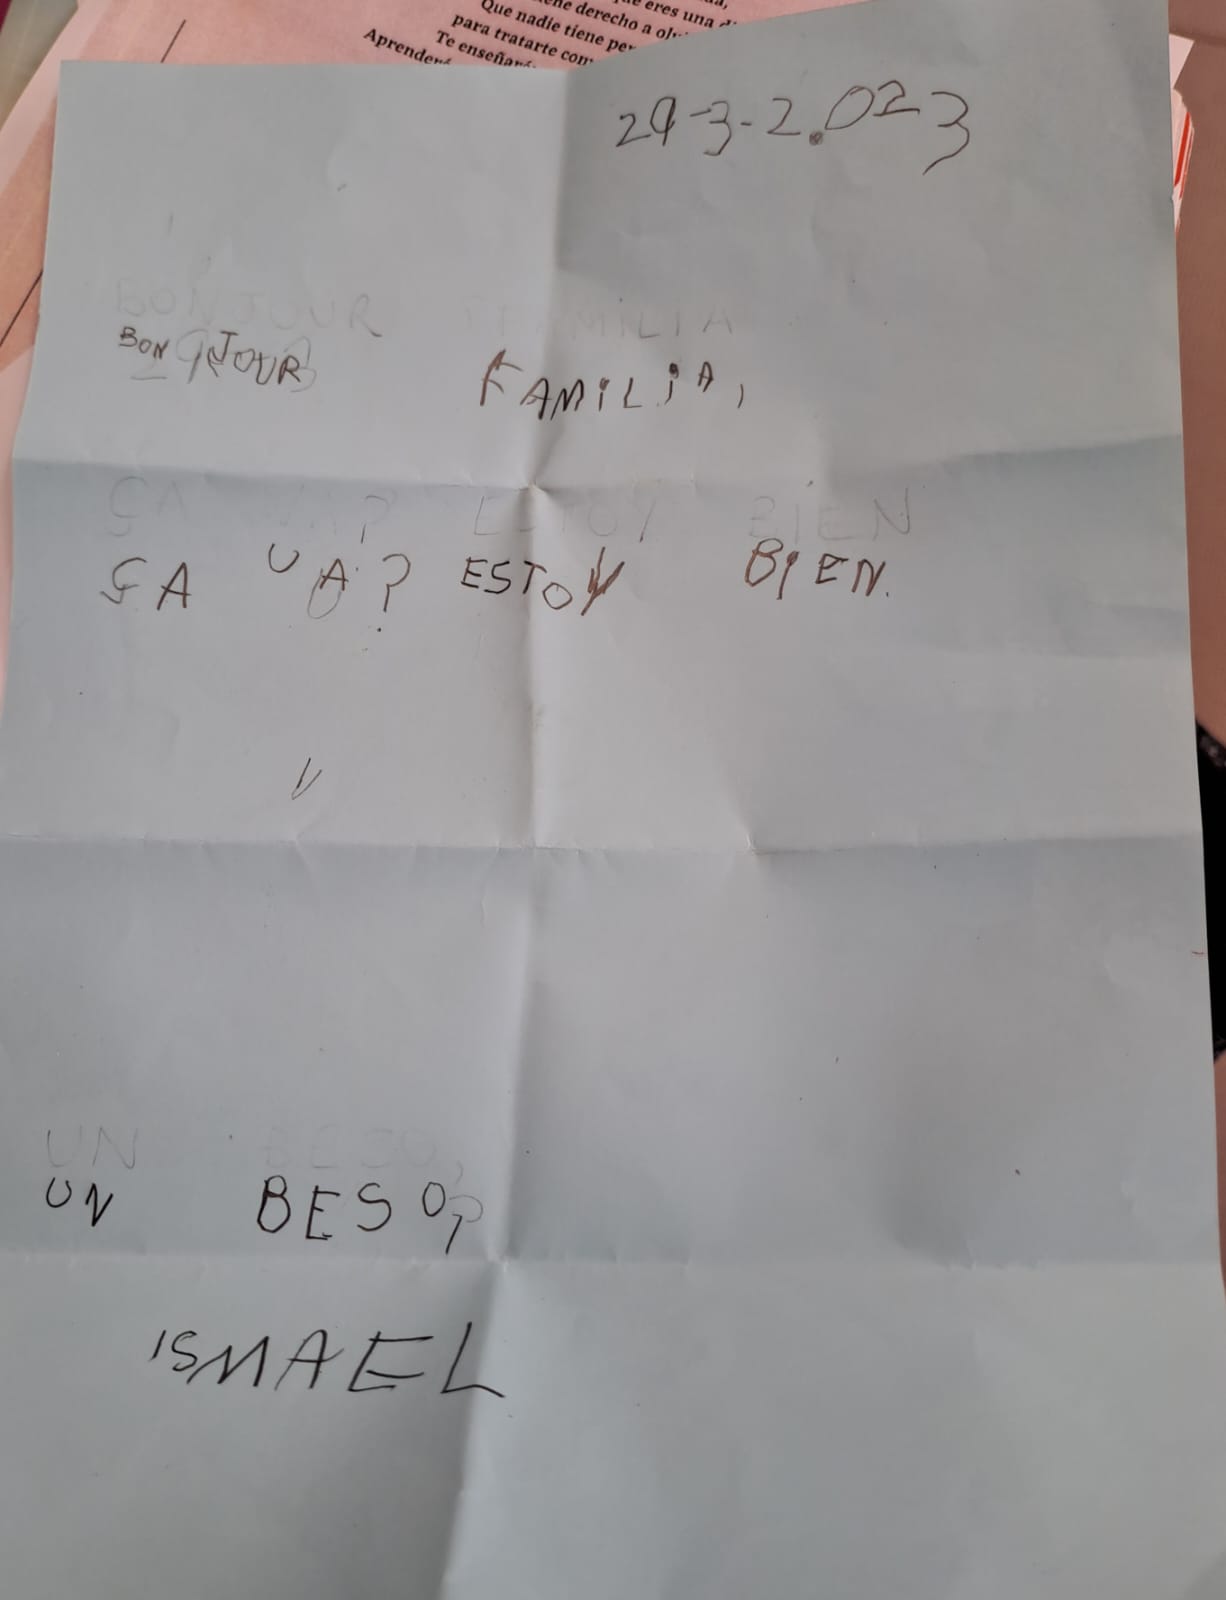 eres una
derecho a
Que nadie tiene
para tratarte
Te enseñaré
Aprenderé
29-3-2.023
BONJOUR FAMILIA
BONJOUR FAMILIA,
ÇA VA? ESTOY BIEN
ÇA VA? ESTOY BIEN.
UN BESO,
UN BESO,
ISMAEL